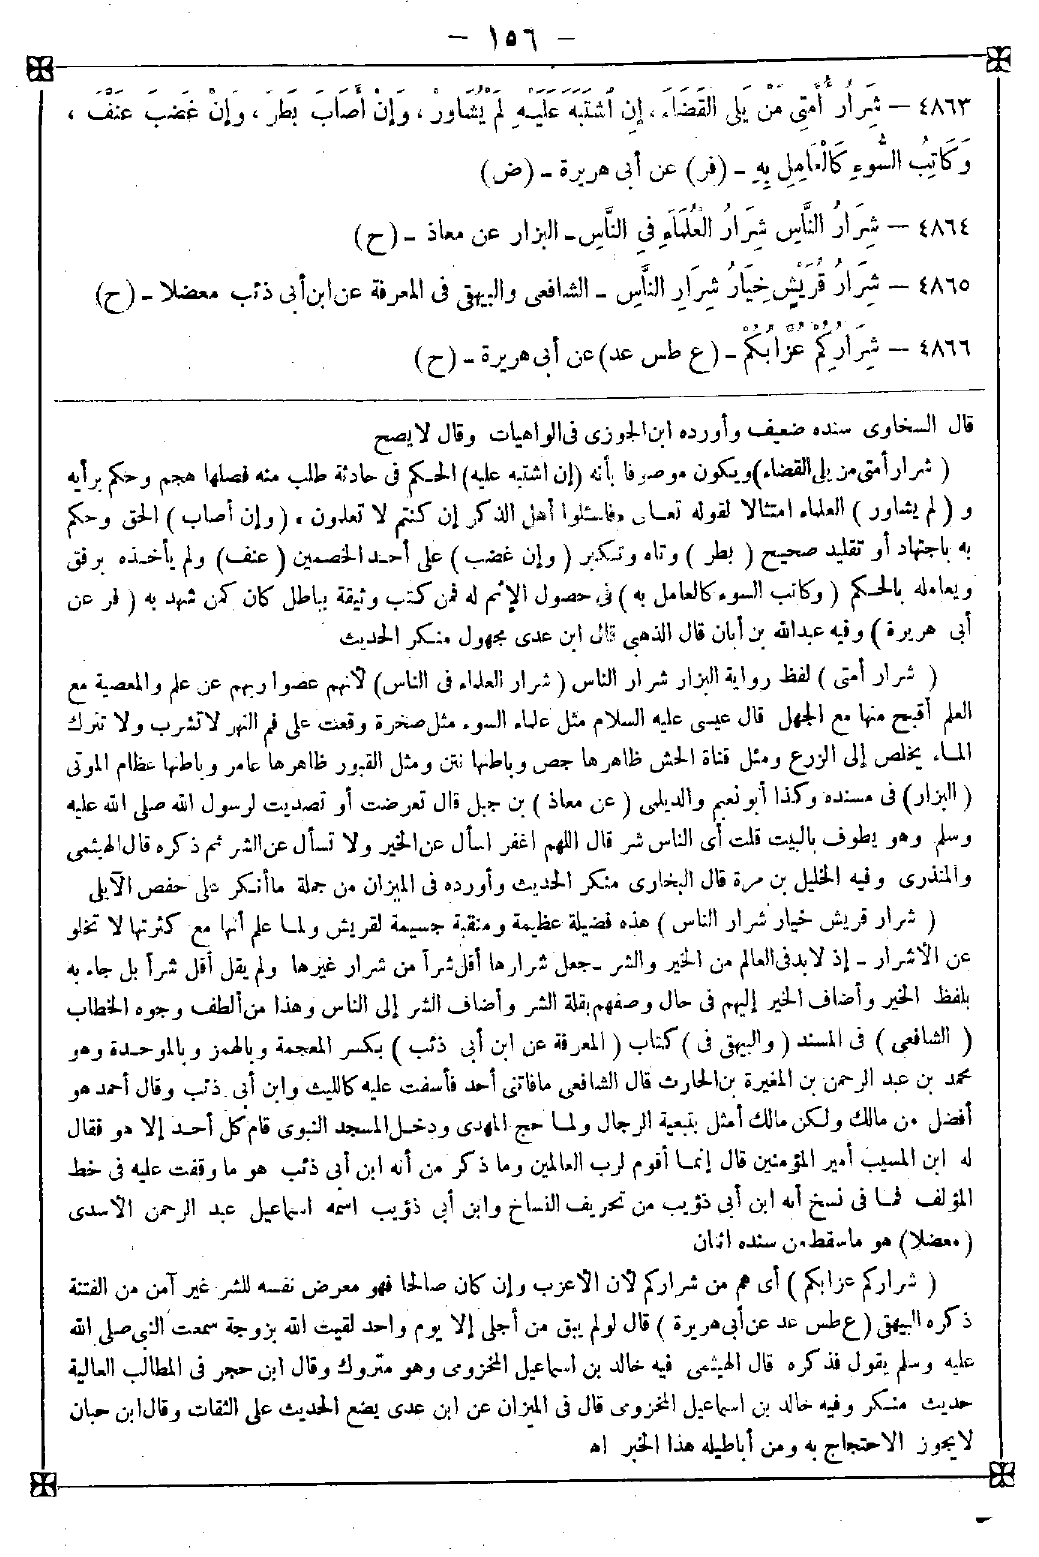 - ١٥٦ -
٤٨٦٣ — شِرَارُ أُمَّتِى مَنْ يَلِى القَضَاءَ، إِنِ اشْتَبَهَ عَلَيْهِ لَمْ يُشَاوِرْ، وَإِنْ أَصَابَ بَطَرَ، وَإِنْ غَضِبَ عَنَّفَ،
وَكَاتِبُ السُّوءِ كَالْعَامِلِ بِهِ - (فر) عن أبى هريرة - (ض)
٤٨٦٤ — شِرَارُ النَّاسِ شِرَارُ العُلَمَاءِ فِي النَّاسِ - البزار عن معاذ - (ح)
٤٨٦٥ — شِرَارُ قُرَيْشٍ خِيَارُ شِرَارِ النَّاسِ - الشافعى والبيهقى فى المعرفة عن ابن أبى ذئب معضلا - (ح)
٤٨٦٦ — شِرَارُكُمْ عُزَّابُكُمْ - (ع طس عد) عن أبى هريرة - (ح)
قال السخاوى سنده ضعيف وأورده ابن الجوزى فى الواهيات وقال لا يصح
( شرار أمتى من يلى القضاء) ويكون موصوفا بأنه (إن اشتبه عليه) الحكم فى حادثة طلب منه فصلها هجم وحكم برأيه
و ( لم يشاور ) العلماء امتثالا لقوله تعالى «فاسئلوا أهل الذكر إن كنتم لا تعلمون» (وإن أصاب ) الحق وحكم
به باجتهاد أو تقليد صحيح ( بطر ) وتاه وتكبر ( وإن غضب ) على أحد الخصمين ( عنف) ولم يأخذه برفق
ويعامله بالحكم ( وكاتب السوء كالعامل به ) فى حصول الإثم له فمن كتب وثيقة بباطل كان كمن شهد به ( فر عن
أبى هريرة ) وفيه عبدالله بن أبان قال الذهبى قال ابن عدى مجهول منكر الحديث
( شرار أمتى ) لفظ رواية البزار شرار الناس ( شرار العلماء فى الناس) لأنهم عصوا ربهم عن علم والمعصية مع
العلم أقبح منها مع الجهل قال عيسى عليه السلام مثل علماء السوء مثل صخرة وقعت على فم النهر لا تشرب ولا تترك
الماء يخلص إلى الزرع ومثل قناة الحش ظاهرها جص وباطنها نتن ومثل القبور ظاهرها عامر وباطنها عظام الموتى
( البزار) فى مسنده وكذا أبو نعيم والديلمى ( عن معاذ ) بن جبل قال تعرضت أو تصديت لرسول الله صلى الله عليه
وسلم وهو يطوف بالبيت قلت أى الناس شر قال اللهم اغفر اسأل عن الخير ولا تسأل عن الشر ثم ذكره قال الهيثمى
والمنذرى وفيه الخليل بن مرة قال البخارى منكر الحديث وأورده فى الميزان من جملة ما أنكر على حفص الآيلى
( شرار قريش خيار شرار الناس ) هذه فضيلة عظيمة ومنقبة جسيمة لقريش ولما علم أنها مع كثرتها لا تخلو
عن الأشرار - إذ لا بد فى العالم من الخير والشر - جعل شرارها أقل شراً من شرار غيرها ولم يقل أقل شراً بل جاء به
بلفظ الخير وأضاف الخير إليهم فى حال وصفهم بقلة الشر وأضاف الشر إلى الناس وهذا من ألطف وجوه الخطاب
( الشافعى ) فى المسند ( والبيهقى فى ) كتاب ( المعرفة عن ابن أبى ذئب ) بكسر المعجمة وبالهمز وبالموحدة وهو
محمد بن عبد الرحمن بن المغيرة بن الحارث قال الشافعى ما فاتنى أحد فأسفت عليه كالليث وابن أبى ذئب وقال أحمد هو
أفضل من مالك ولكن مالك أمثل بتبعية الرجال ولما حج المهدى ودخل المسجد النبوى قام كل أحد إلا هو فقال
له ابن المسيب أمير المؤمنين قال إنما أقوم لرب العالمين وما ذكر من أنه ابن أبى ذئب هو ما وقفت عليه فى خط
المؤلف فما فى نسخ أنه ابن أبى ذؤيب من تحريف النساخ وابن أبى ذؤيب اسمه اسماعيل عبد الرحمن الأسدى
( معضلا) هو ما سقط من سنده اثنان
( شراركم عزابكم ) أى هم من شراركم لأن الأعزب وإن كان صالحا فهو معرض نفسه للشر غير آمن من الفتنة
ذكره البيهقى ( ع طس عد عن أبى هريرة ) قال لو لم يبق من أجلى إلا يوم واحد لقيت الله بزوجة سمعت النبى صلى الله
عليه وسلم يقول فذكره قال الهيثمى فيه خالد بن اسماعيل المخزومى وهو متروك وقال ابن حجر فى المطالب العالية
حديث منكر وفيه خالد بن اسماعيل المخزومى قال فى الميزان عن ابن عدى يضع الحديث على الثقات وقال ابن حبان
لا يجوز الاحتجاج به ومن أباطيله هذا الخبر اه